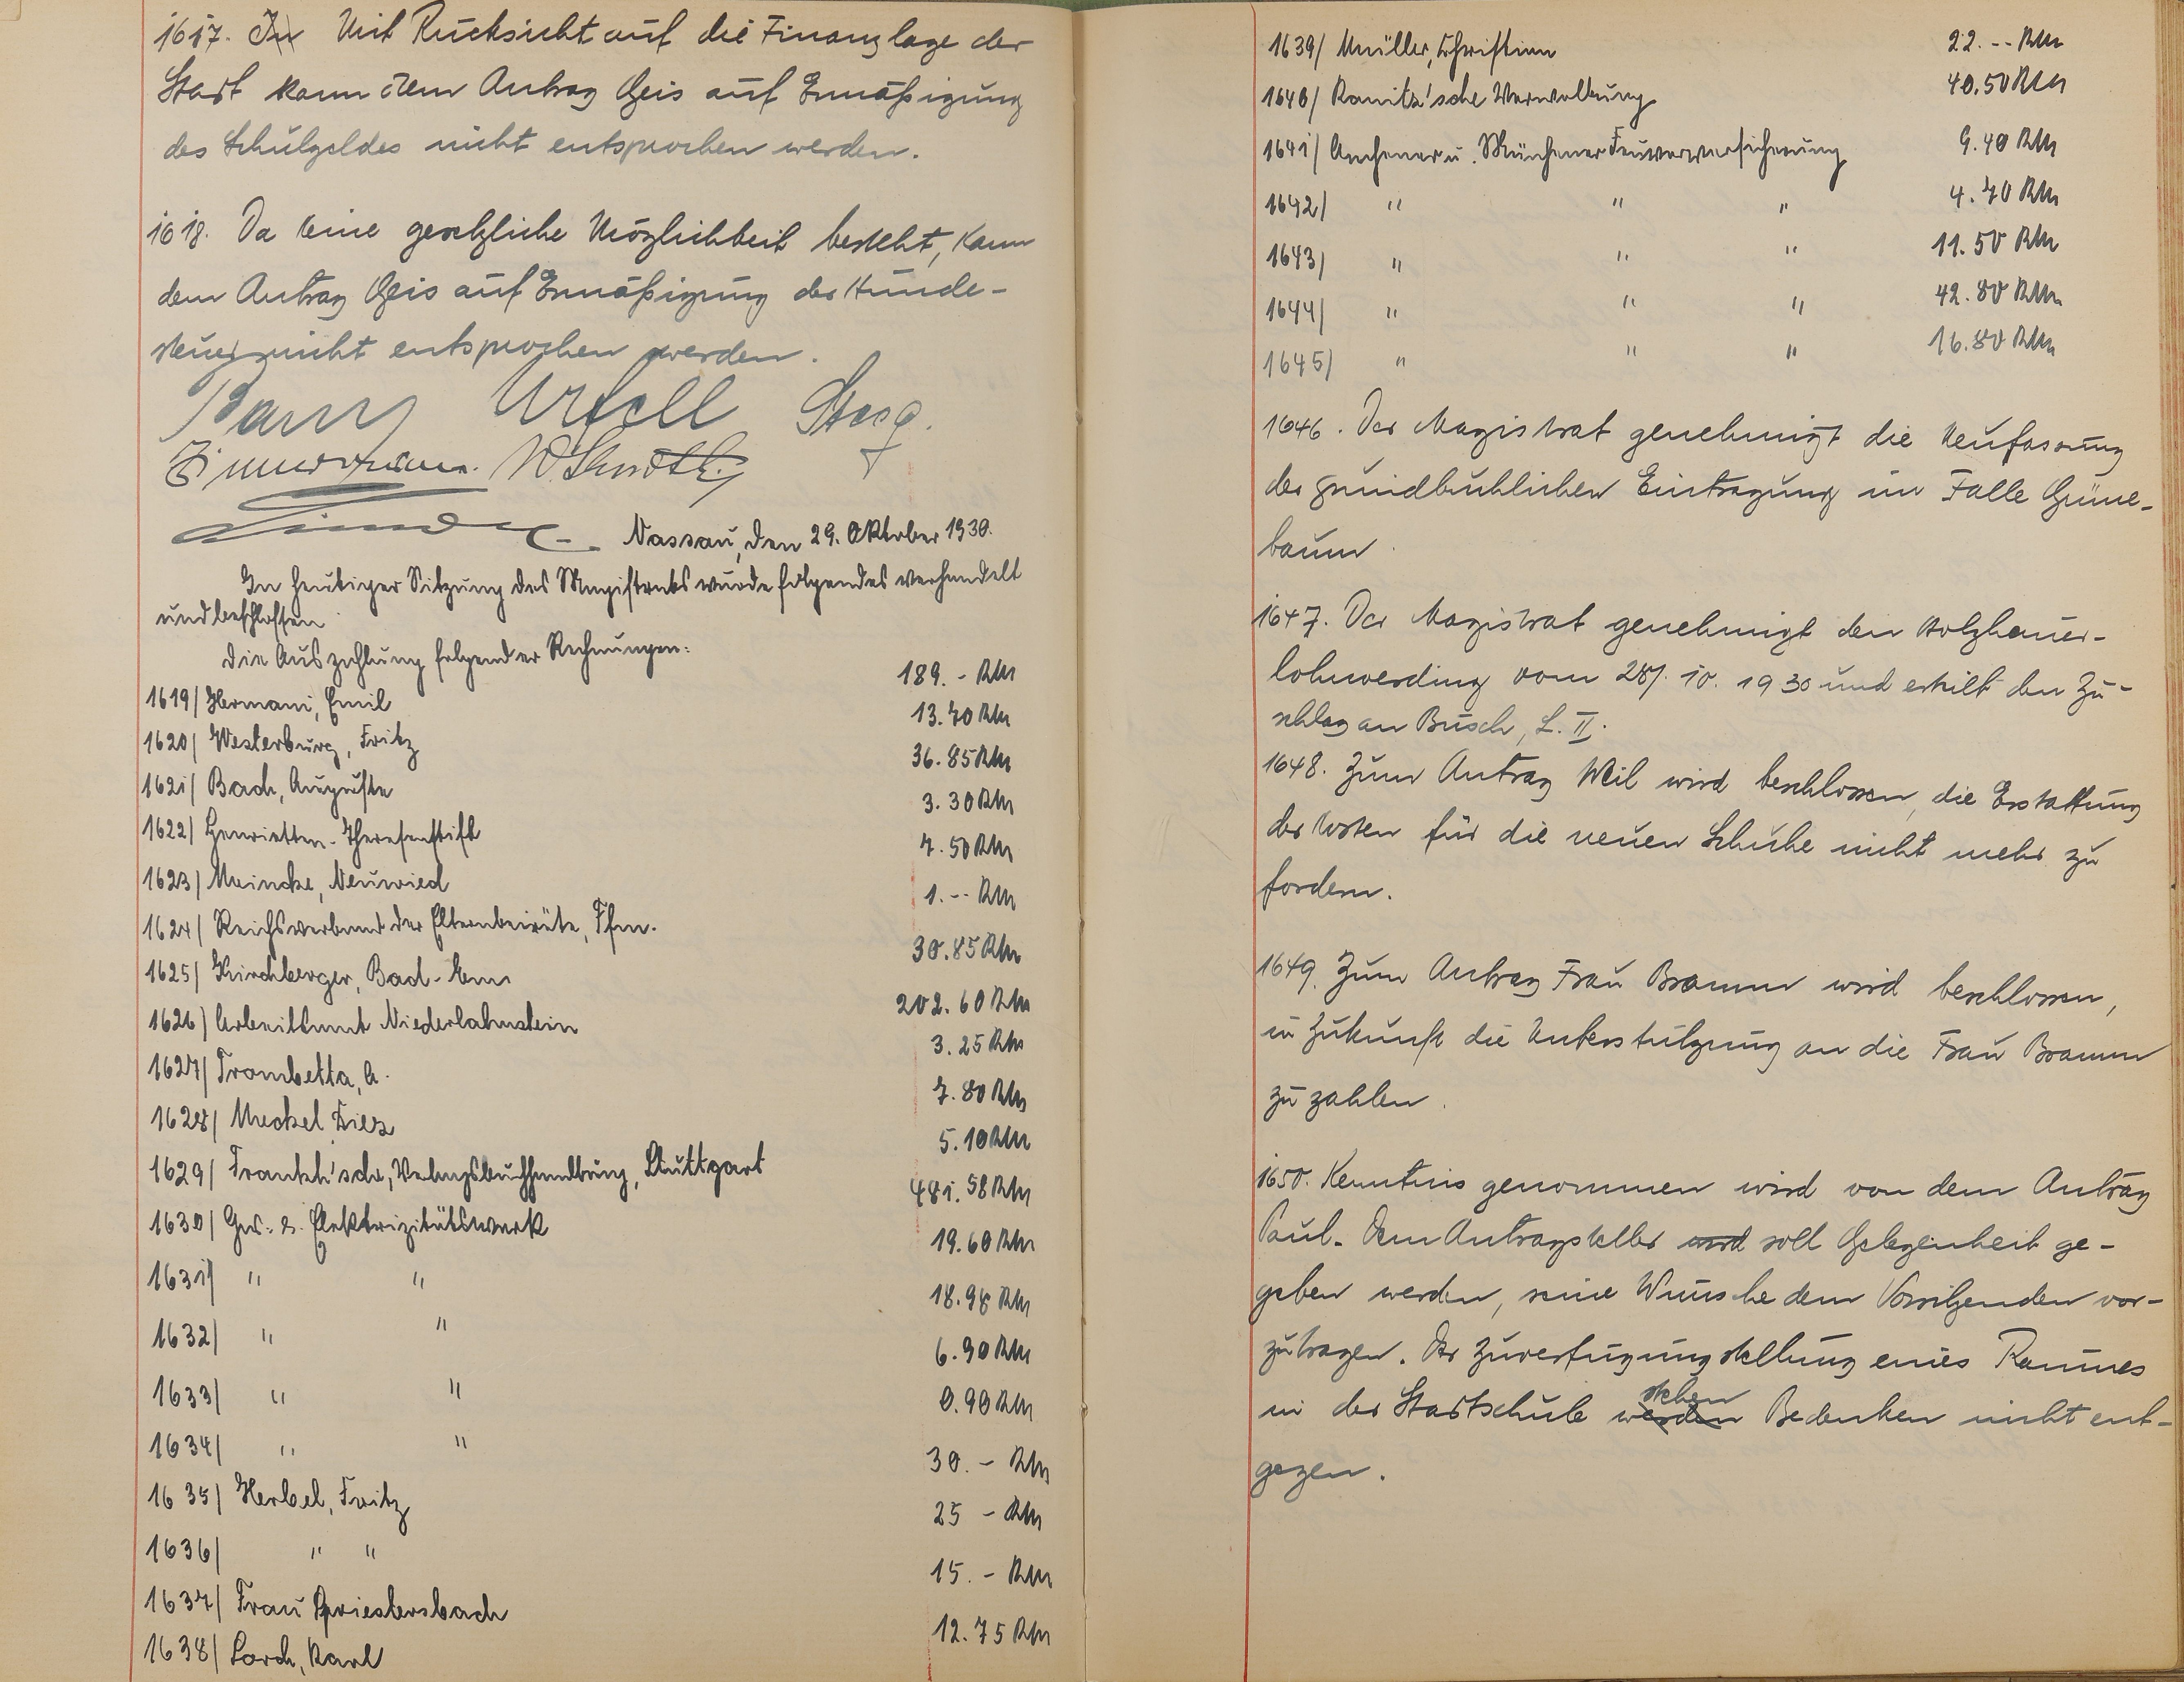 1617. In Mit Rücksicht auf die Finanzlage der
Stadt kann dem Antrag Geis auf Ermäßigung
des Schulgeldes nicht entsprochen werden.
1618. Da keine gesetzliche Möglichkeit besteht, kann
dem Antrag Geis auf Ermäßigung der Hunde-
steuer nicht entsprochen werden.
Zimmermann.
Nassau, den 29. Oktober 1930.
In heutiger Sitzung des Magistrats wurde folgendes verhandelt
und beschlossen
die Auszahlung folgender Rechnungen:
1619/ Hermani, Emil 189.- RM
1620/ Westerburg, Fritz 13.70 RM
1621/ Bach, Auguste 36.85 RM
1622/ Henrietten-Theresenstift 3.30 RM
1623/ Meincke, Neuwied 7.50 RM
1624/ Reichsverband der Elternbeiräte, Ffm. 1.-- RM
1625/ Kirchberger, Bad-Ems 30.85 RM
1626/ Arbeitsamt Niederlahnstein 202.60 RM
1627/ Trombetta, A. 3.25 RM
1628/ Meckel Diez 7.80 RM
1629/ Franckh'sche, Verlagsbuchhandlung, Stuttgart 5.10 RM
1630/ Gas- u. Elektrizitätswerk 481.58 RM
1631/ " " 19.60 RM
1632/ " " 18.98 RM
1633/ " " 6.90 RM
1634/ " " 0.90 RM
1635/ Herbel, Fritz 30.- RM
1636/ " " 25 - RM
1637/ Frau Griestersbach 15.- RM
1638/ Lorch, Karl 12.75 RM
1639/ Müller, Christian 22.-- RM
1640/ Kanitz'sche Verwaltung 40.50 RM
1641/ Aachener u. Münchener Feuerversicherung 9.40 RM
1642/ " " " 4.70 RM
1643/ " " " 11.50 RM
1644/ " " " 42.80 RM
1645/ " " " 16.80 RM
1646. Der Magistrat genehmigt die Neufassung
der grundbuchlichen Eintragung im Falle Grüne-
baum
1647. Der Magistrat genehmigt den Holzhauer-
lohnverding vom 28/. 10. 1930 und erteilt den Zu-
schlag an Busch, L. II.
1648. Zum Antrag Weil wird beschlossen, die Erstattung
der Kosten für die neuen Schuhe nicht mehr zu
fordern.
1649. Zum Antrag Frau Bramm wird beschlossen,
in Zukunft die Unterstützung an die Frau Bramm
zu zahlen.
1650. Kenntnis genommen wird von dem Antrag
Paul. Dem Antragsteller wird soll Gelegenheit ge-
geben werden, seine Wünsche dem Vorsitzenden vor-
zutragen. Der Zuverfugungstellung eines Raumes
in der Stadtschule werden stehen Bedenken nicht ent-
gegen.